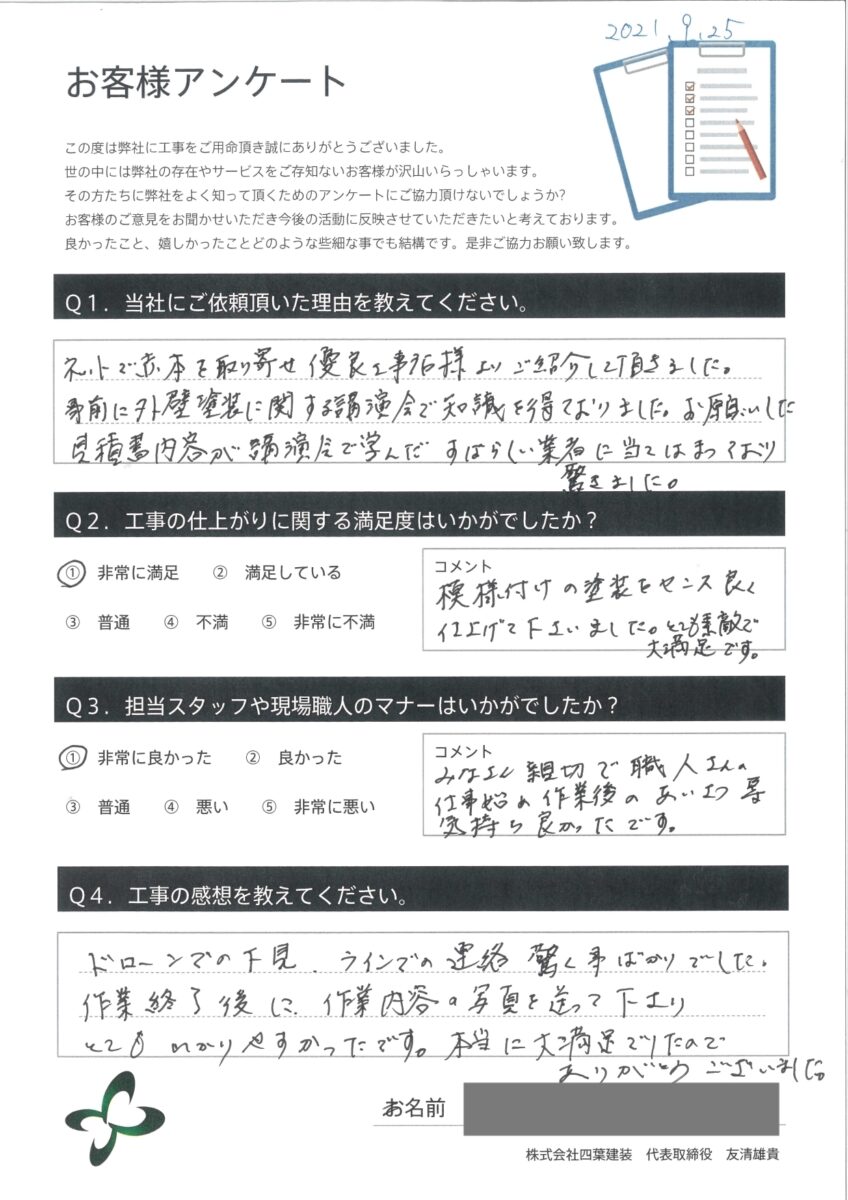 2021.9.25
お客様アンケート
この度は弊社に工事をご用命頂き誠にありがとうございました。
世の中には弊社の存在やサービスをご存知ないお客様が沢山いらっしゃいます。
その方たちに弊社をよく知って頂くためのアンケートにご協力頂けないでしょうか?
お客様のご意見をお聞かせいただき今後の活動に反映させていただきたいと考えております。
良かったこと、嬉しかったことどのような些細な事でも結構です。是非ご協力お願い致します。
Q1. 当社にご依頼頂いた理由を教えてください。
ネットで赤本を取り寄せ優良工事店様よりご紹介して頂きました。
事前に外壁塗装に関する講演会で知識を得ておりました。お願いした
見積書内容が講演会で学んだすばらしい業者に当てはまっており
驚きました。
Q2. 工事の仕上がりに関する満足度はいかがでしたか?
① 非常に満足 ② 満足している
③ 普通 ④ 不満 ⑤ 非常に不満
コメント
模様付けの塗装をセンス良く
仕上げて下さいました。とても素敵で
大満足です。
Q3. 担当スタッフや現場職人のマナーはいかがでしたか?
① 非常に良かった ② 良かった
③ 普通 ④ 悪い ⑤ 非常に悪い
コメント
みなさん親切で職人さんの
仕事始め作業後のあいさつ
気持ち良かったです。
Q4. 工事の感想を教えてください。
ドローンでの下見、ラインでの連絡驚く事ばかりでした。
作業終了後に作業内容の写真を送って下さり
とてもわかりやすかったです。本当に大満足
ありがとうございました。
お名前
株式会社四葉建装 代表取締役 友清雄貴